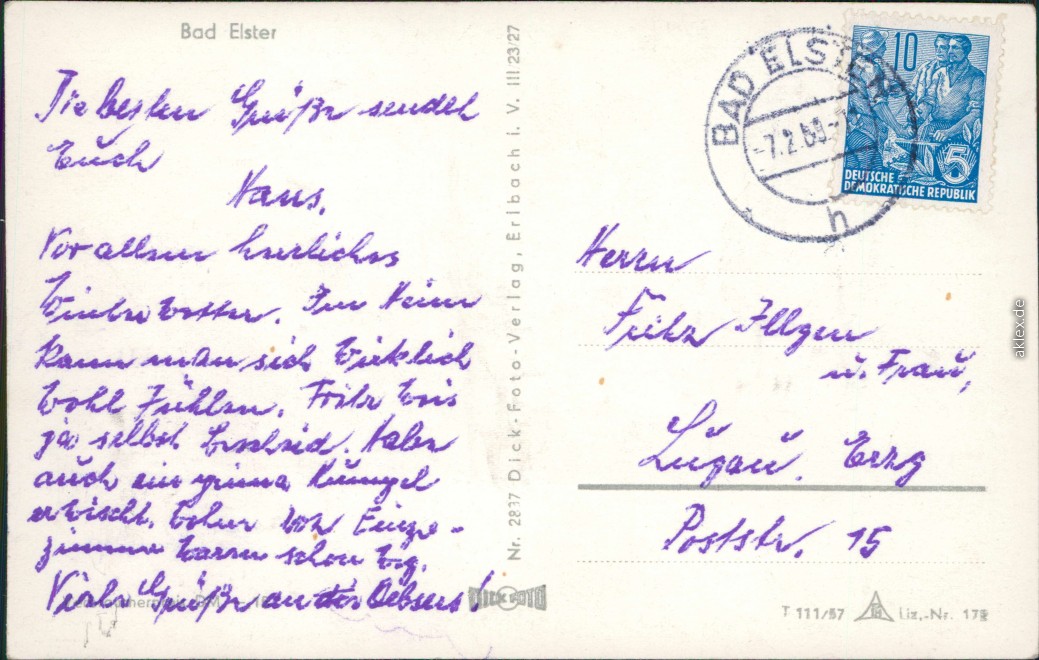 Bad Elster
Die besten Grüße sendet
Euch
Hans.
Vor allem herrliches
Winterwetter. Im Heim
kann man sich wirklich
wohl fühlen. Fritz weis
ja selbst bescheid. Haben
auch ein prima Kumpel
erwischt.
zimmer waren schon weg.
Viele Grüße an
Nr. 2837 Dick-Foto-Verlag, Erlbach i. V. III 23/27
DICK FOTO
BAD ELSTER
-7.2.60.-
h
10
5
DEUTSCHE
DEMOKRATISCHE REPUBLIK
Herrn
Fritz Illgen
u. Frau,
Lugau, Erzg
Poststr. 15
T 111/57
Liz.-Nr.
aklex.de